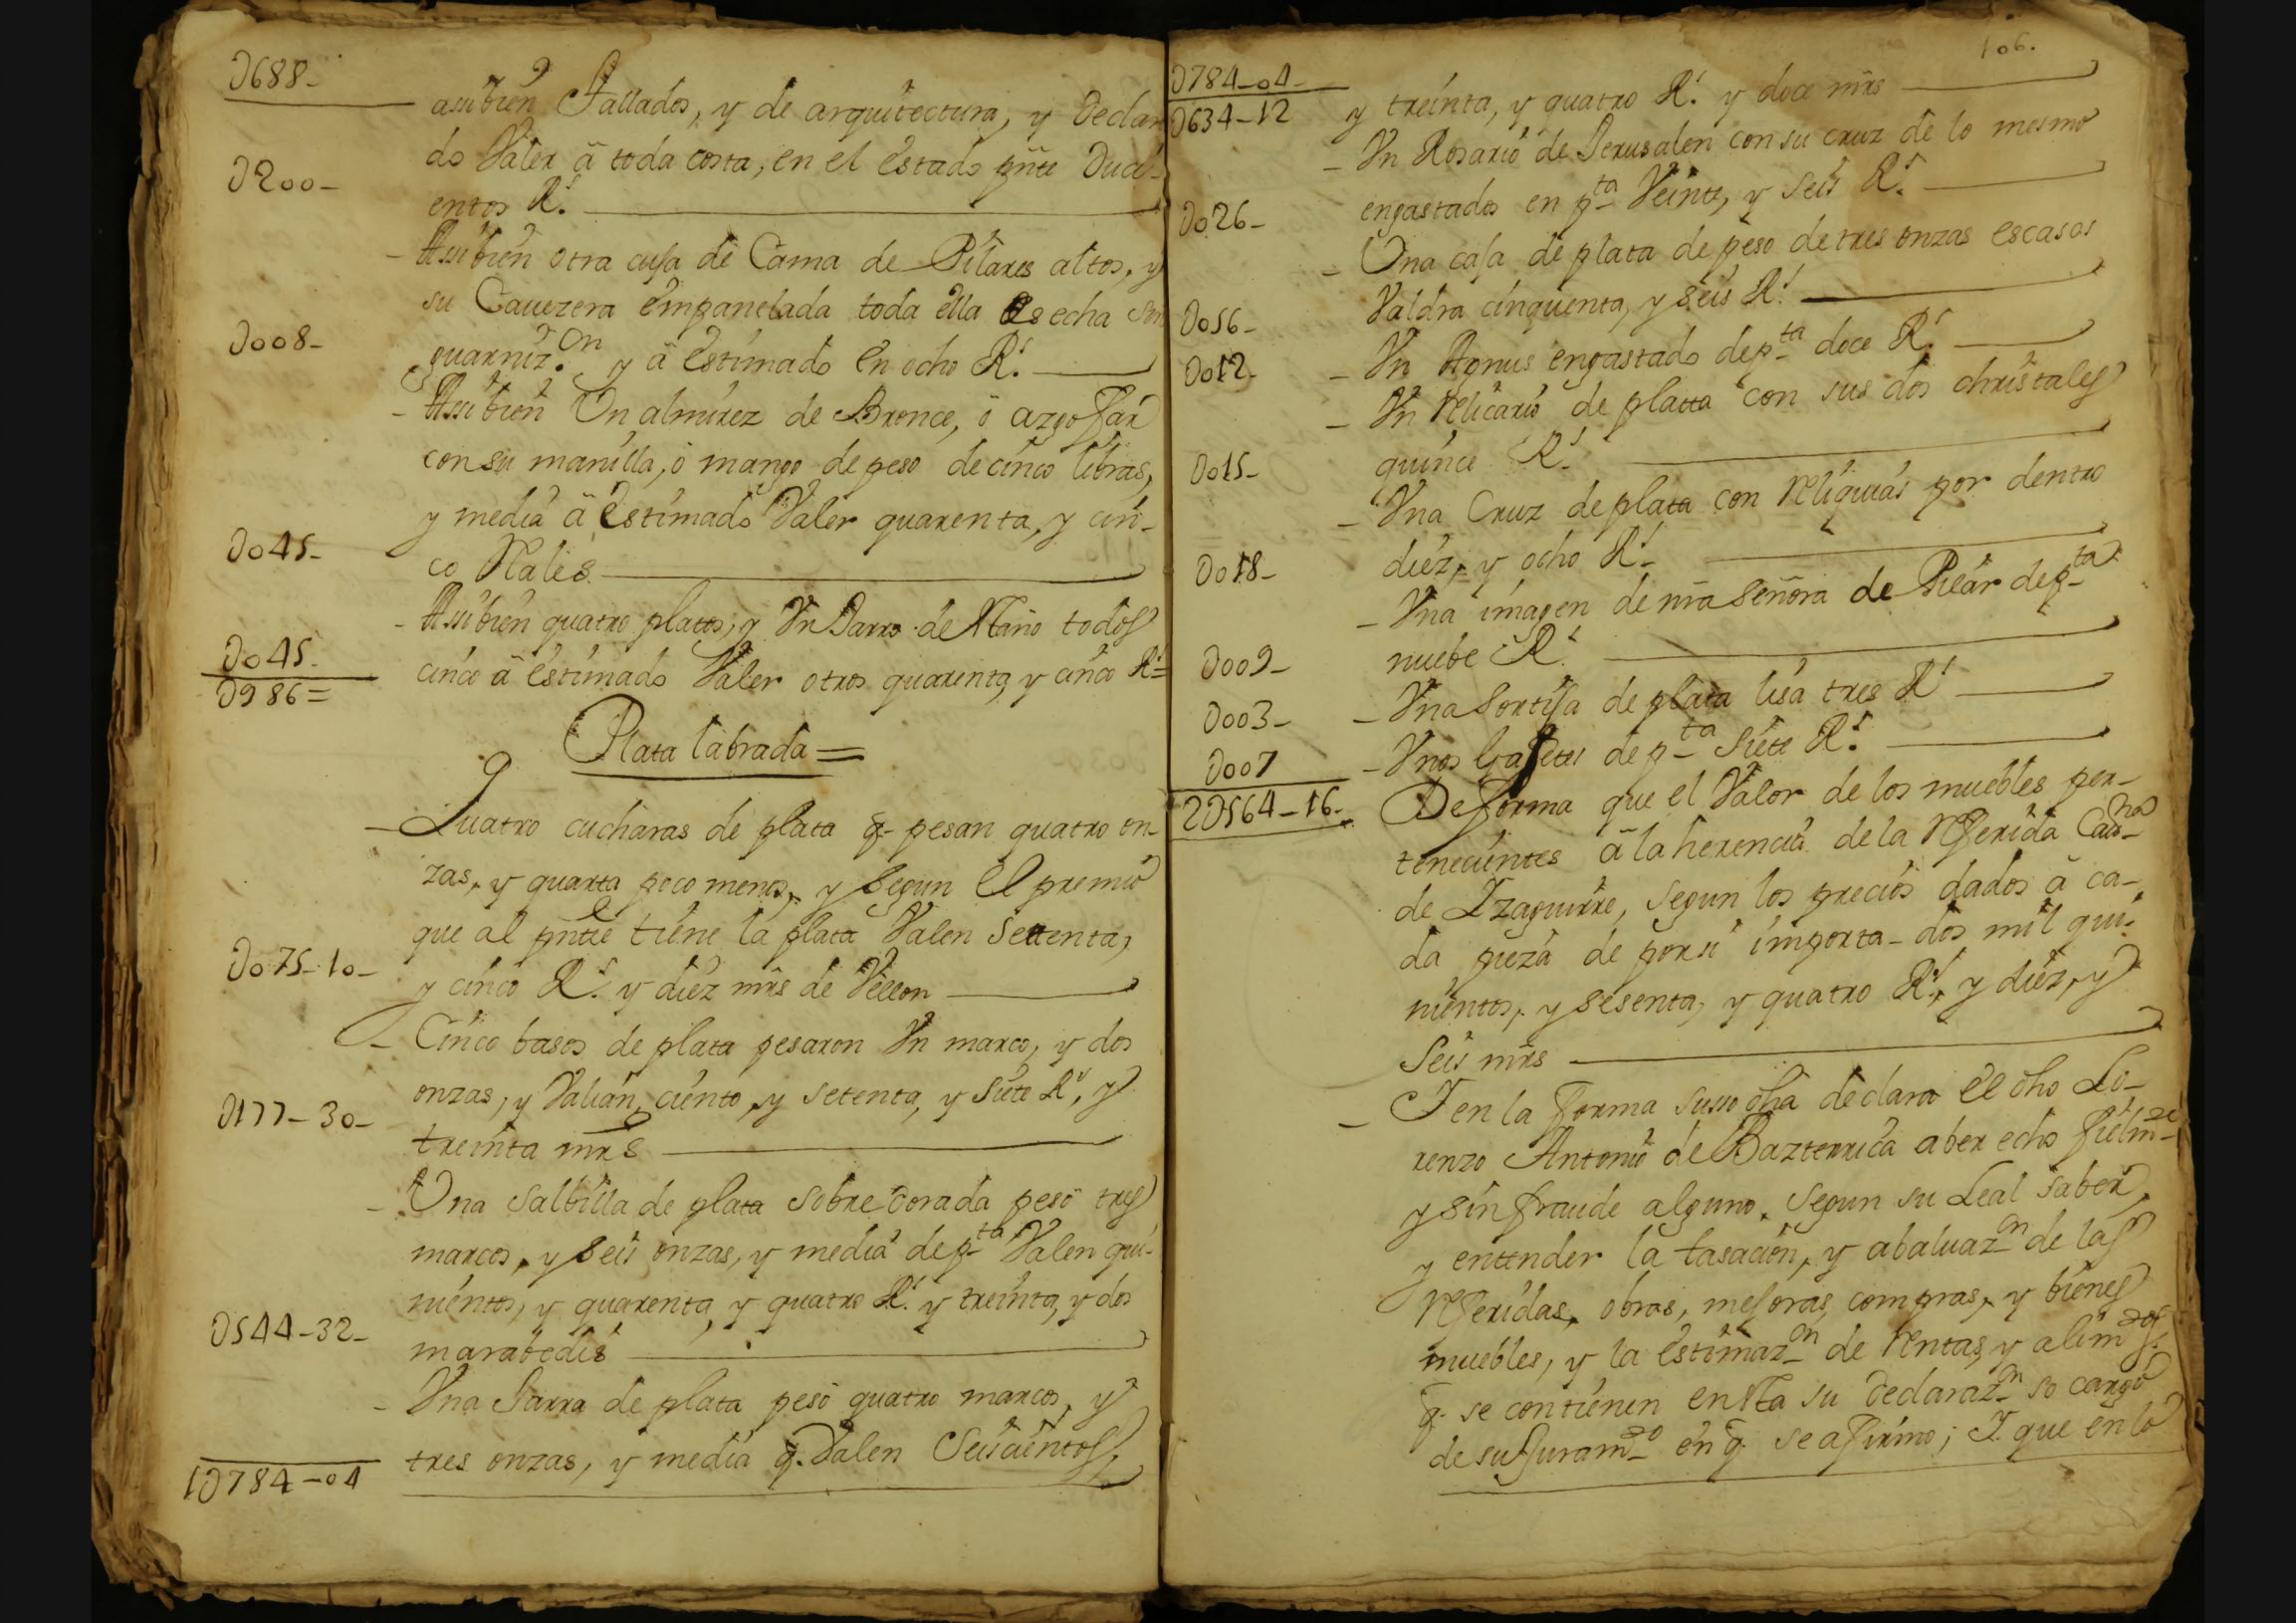 D688-
asibien Tallados, y de arquitectura, y Declara
do Valer â toda costa, en el estado pñte Duci-
D200-
entos R.s
- Asibien otra cuja de Cama de Pilares altos, y
su Cavezera empanelada toda ella es echa sin
D008-
guarniz.on y â estimado en ocho R.s
- Asibien Un almirez de Bronce, ô azofar
con su manilla, ô mango de peso de cinco libras,
y media â estimado Valer quarenta, y cin-
D045-
co Reales
- Asibien quatro platos, y Un Jarro de estaño todos
D045-
cinco â estimado Valer otros quarenta, y cinco R.s=
D986=
Plata labrada=
- Quatro cucharas de plata q- pesan quatro on-
zas, y quarta poco menos, y segun el premio
que al pñte tiene la plata Valen settenta,
D075-10-
y cinco R.s y diez mrs de Vellon
- Cinco basos de plata pesaron Un marco, y dos
onzas, y Valian, ciento, y setenta, y siete R.s, y
D177-30-
treinta mrs
- Una Salbilla de plata sobredorada pesó tres
marcos, y seis onzas, y media de p-ta Valen qui-
nientos, y quarenta, y quatro R.s y treinta, y dos
D544-32-
marabedis
- Una Jarra de plata pesó quatro marcos, y
tres onzas, y media q. Valen Seiscientos,
1D784-04
106.
D784-04-
y treinta, y quatro R.s y doce mrs
D634-12
- Un Rosario de Jerusalen con su cruz de lo mesmo
engastados en p-ta Veinte, y seis R.s
D026-
- Una caja de plata de peso de tres onzas escasas
Valdra cinquenta, y seis R.s
D056-
- Un Agnus engastado de p-ta doce R.s
D012-
- Un Relicario de platta con sus dos christales
quince R.s
D015-
- Una Cruz de plata con Reliquias por dentro
diez, y ocho R.s
D018-
- Una imagen de nra señora de Pilar de p-ta
nuebe R.s
D009-
- Una sortija de plata lisa tres R.s
D003-
- Unos Gafetes de p-ta siete R.s
D007
De forma que el Valor de los muebles per-
2D564-16-
tenecientes â la herencia de la Referida Cat-na
de Izaguirre, segun los precios dados â ca-
da pieza de por si importa- dos mil qui-
nientos, y sesenta, y quatro R.s, y diez, y
Seis mrs
- I en la forma suso dha declara el dho Lo-
renzo Antonio de Bazterrica aber echo fielm-te
y sin fraude alguno, segun su Leal saber,
y entender la tasacion, y abaluaz-on de las
Referidas, obras, mejoras, compras, y bienes
muebles, y la estimaz-on de Rentas, y alim-tos
q- se contienen en esta su declaraz-on so cargo
de su Juram-to en q- se afirmo; I que en lo